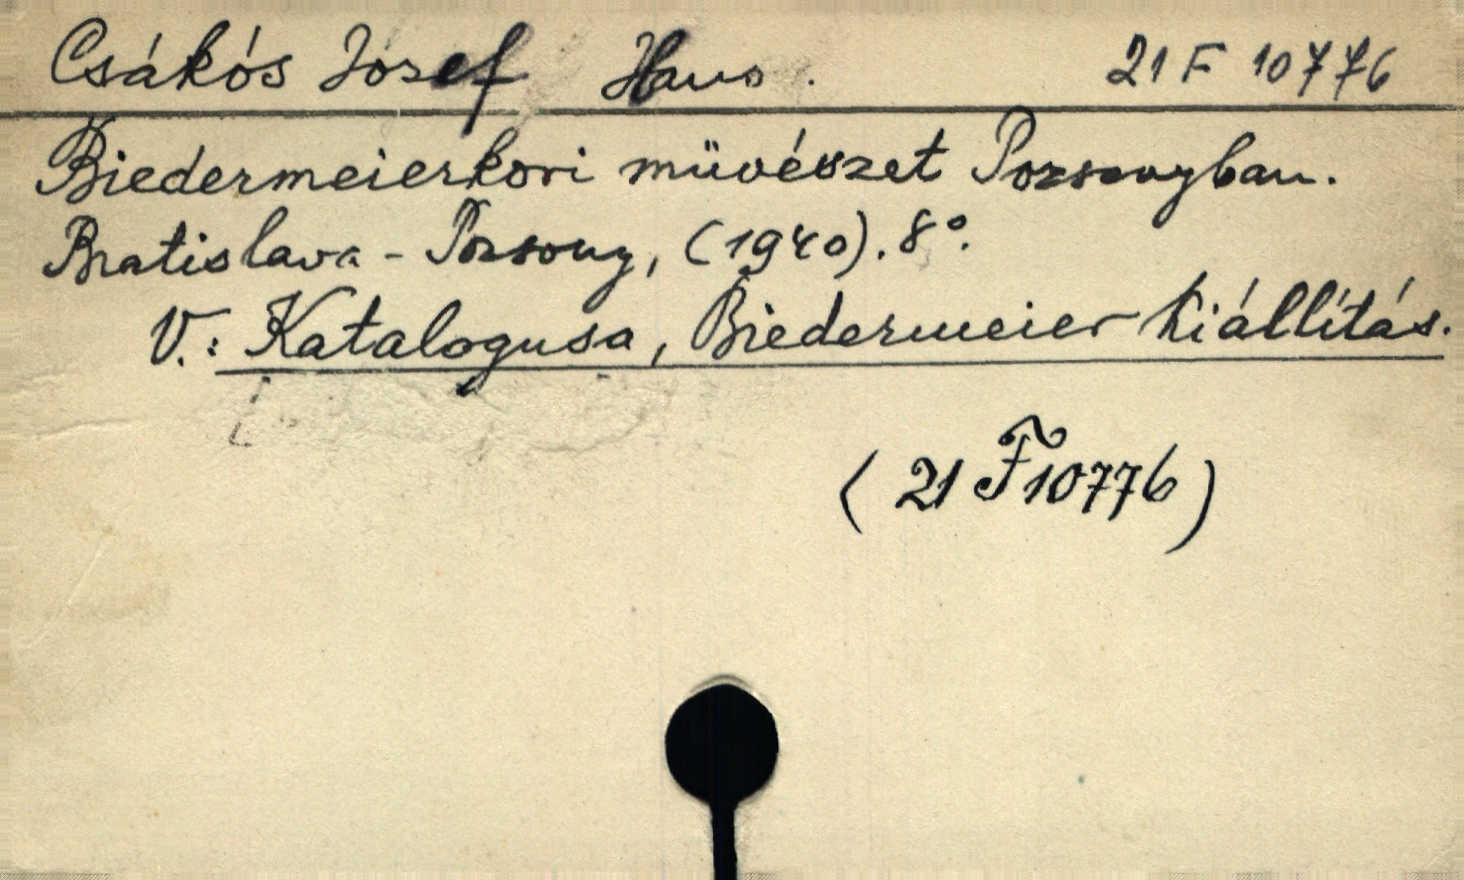 Csákós József Hans. 21 F 10776
Biedermeierkori müvészet Pozsonyban.
Bratislava - Pozsony, (1940). 8°.
V.: Katalogusa, Biedermeier kiállítás.
(21 F 10776)